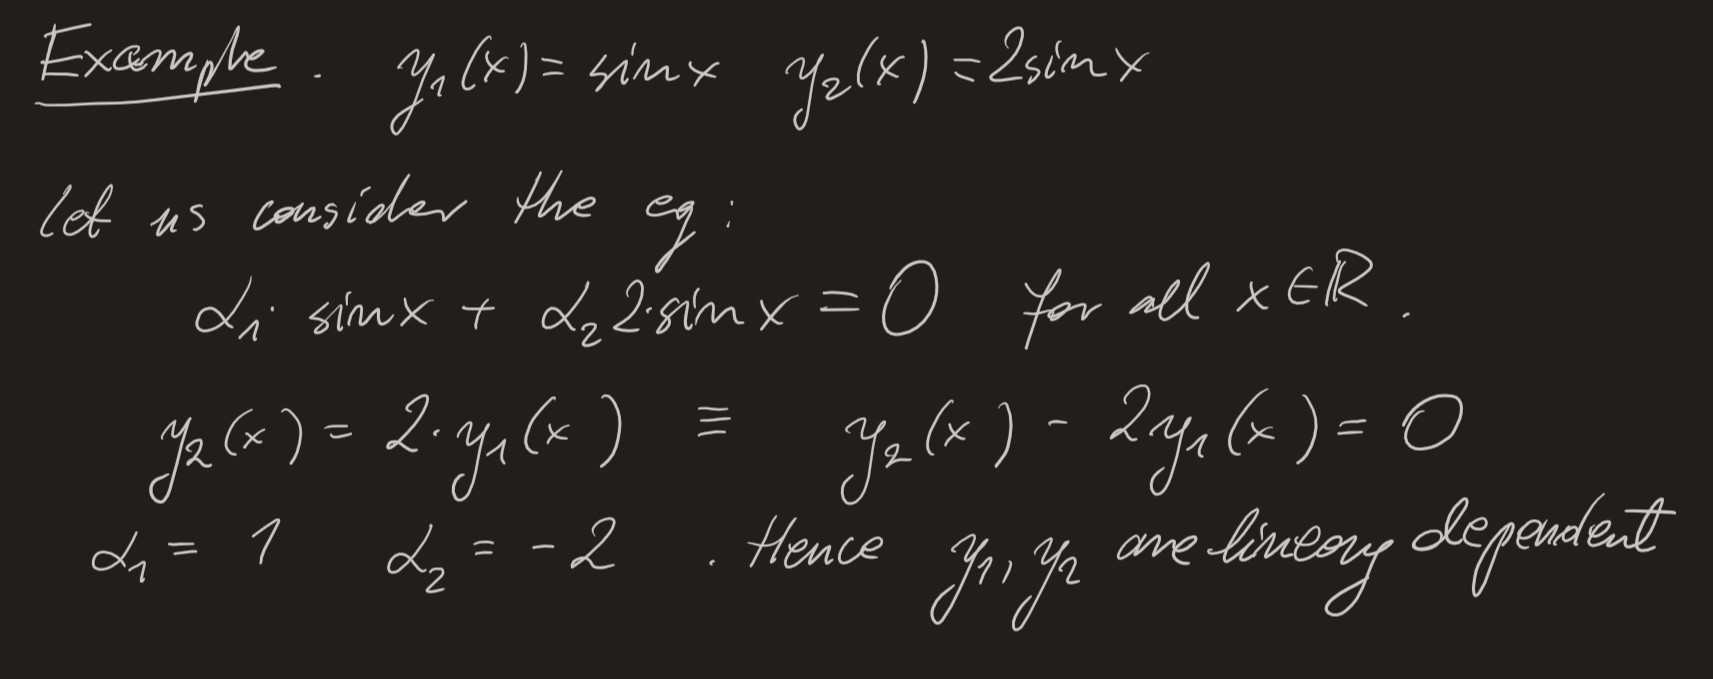 Example. y₁(x) = sinx y₂(x) = 2sinx
Let us consider the eq:
α₁· sinx + α₂2·sinx = 0 for all x∈ℝ.
y₂(x) = 2·y₁(x) ≡ y₂(x) - 2y₁(x) = 0
α₁ = 1 α₂ = -2 . Hence y₁, y₂ are lineary dependent